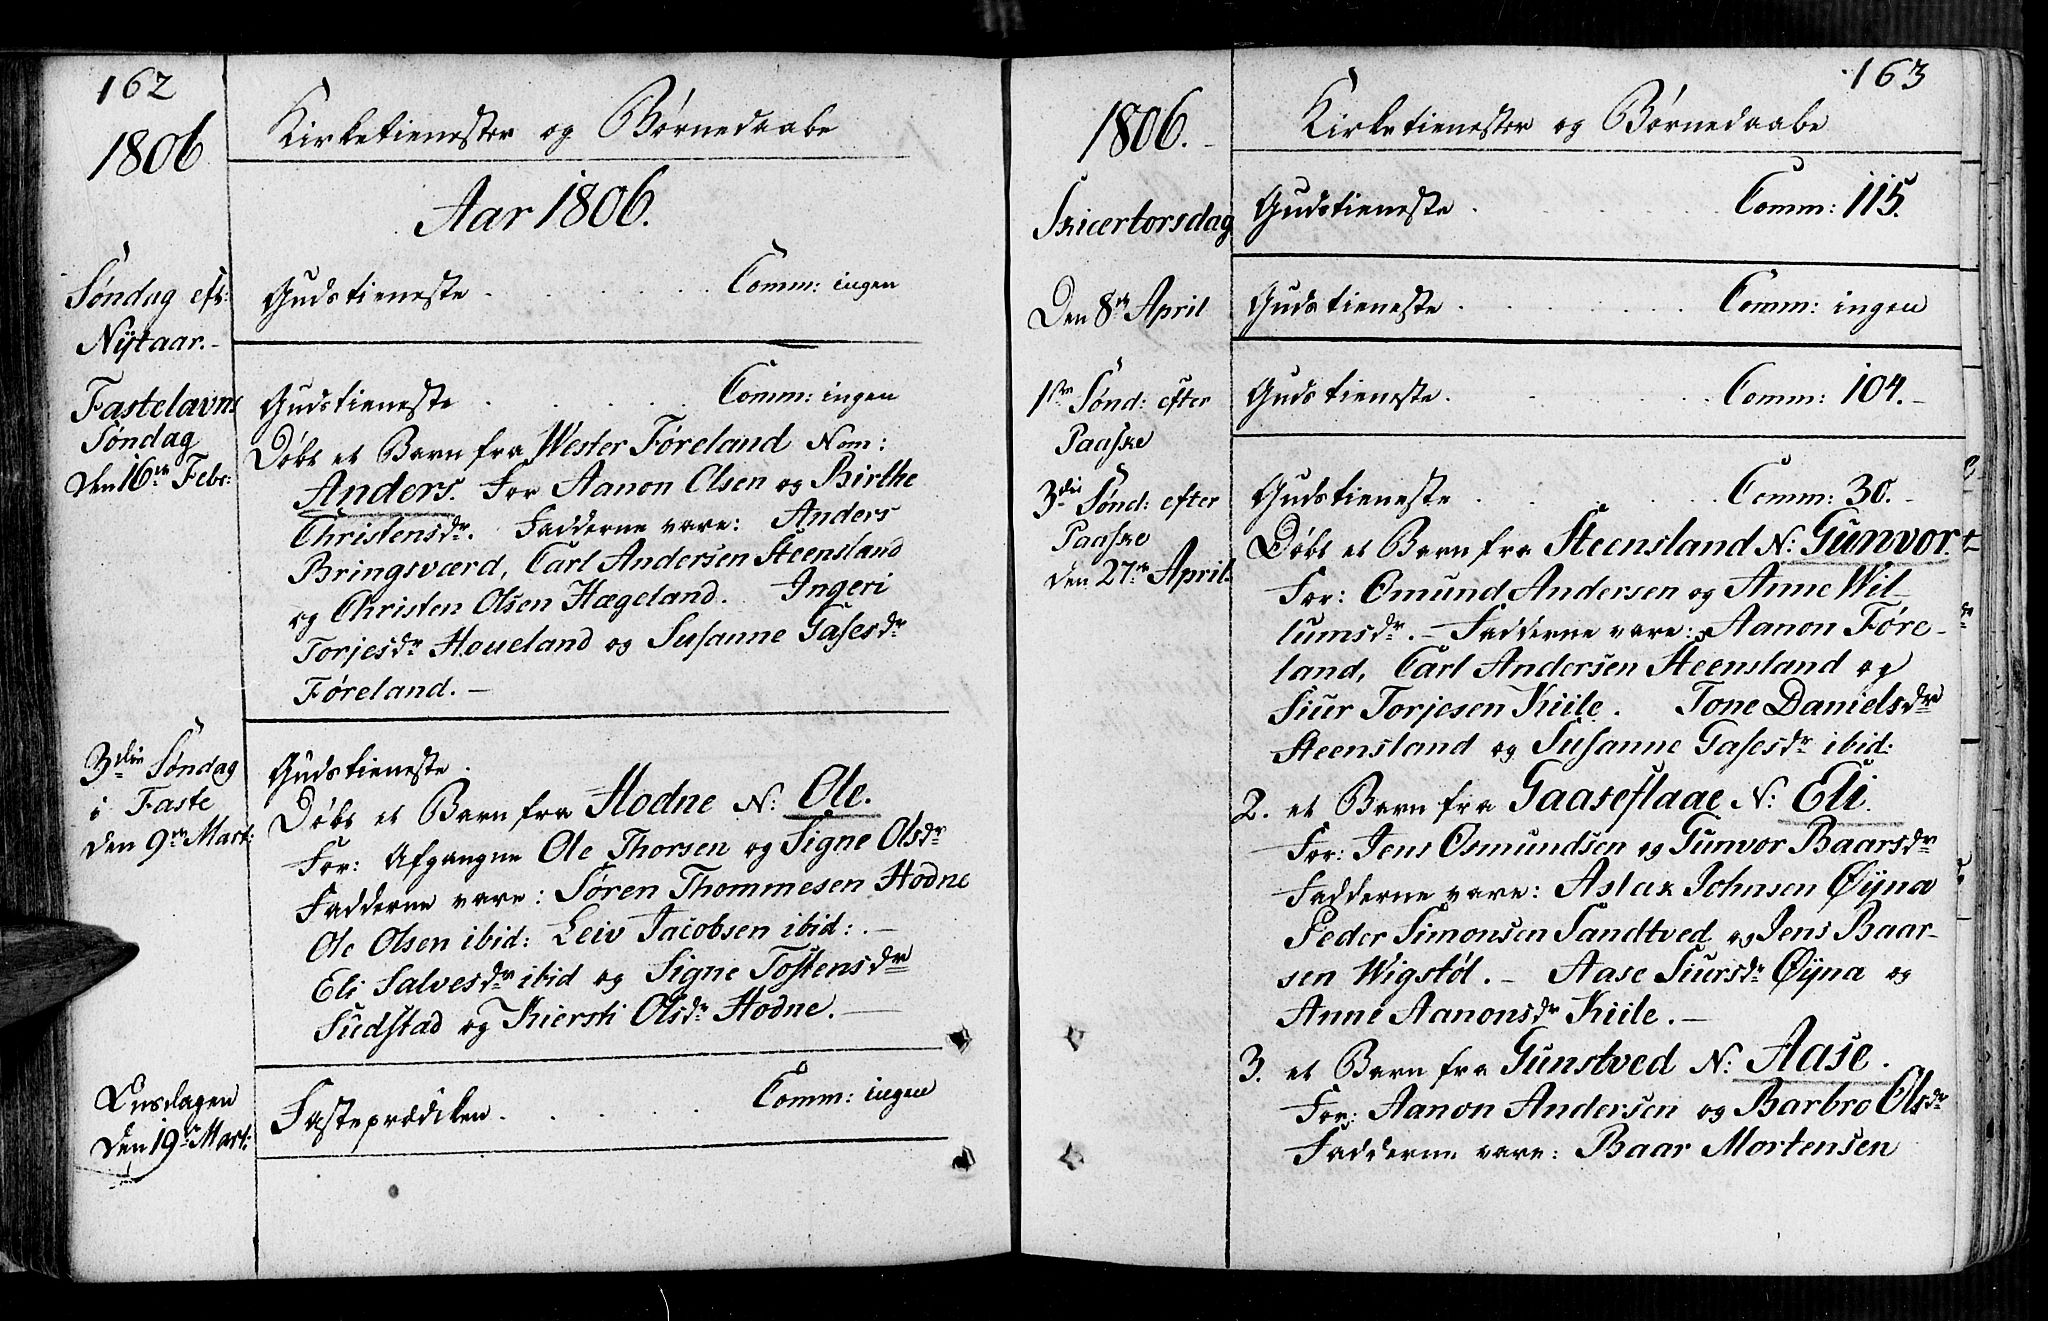 162
1806
Kirketienester og Börnedaabe
Aar 1806.
Søndag eft:
Nÿtaar.-
Gudstieneste . . . . . . Comm: ingen
Fastelavns
Søndag
Den 16de Febr:
Gudstieneste . . . . . Comm: ingen
Døbt et Barn fra Wester Føreland Nom:
Anders. For Aanon Olsen og Birthe
Christensdr. Fadderne vare: Anders
Bringsværd, Carl Andersen Steensland
og Christen Olsen Hægeland. Ingeri
Torjesdr Houeland og Susanne Gasesdr
Føreland. -
3die Søndag
i Faste
den 9de Mart:
Gudstieneste.
Døbt et Barn fra Hodne N: Ole.
For: Afgangne Ole Thorsen og Signe Olsdr
Fadderne vare: Søren Thommesen Hodne
Ole Olsen ibid: Leiv Jacobsen ibid: . -
Eli Salvesdr ibid og Signe Tostensdr
Sudstad og Kiersti Olsdr Hodne. -
Onsdagen
Den 19de Mart:
Fasteprædiken . . . . . Comm: ingen
163
1806.
Kirketienester og Børnedaabe
Skicertorsdag
Gudstieneste . . . . . Comm: 115.
Den 8de April
Gudstieneste . . . . . Comm: ingen
1ste Sønd: efter
Paaske
Gudstieneste. . . . . . Comm: 104. -
3die Sønd: efter
Paaske
den 27de April.
Gudstieneste . . . . . Comm: 30. -
Døbt et Barn fra Steensland N: Gunvor.
For: Omund Andersen og Anne Wil-
lumsdr. - Fadderne vare: Aanon Føre-
land, Carl Andersen Steensland og
Siur Torjesen Kiile. Tone Danielsdr
Steensland og Susanne Gasesdr ibid:
2. et Barn fra Gaaseflaae N: Eli.
For: Jens Osmundsen og Gunvor Baarsdr
Fadderne vare: Aslak Johnsen Øÿna
Peder Simonsen Sandtved og Jens Baar-
sen Wigstøl. - Aase Siursdr Øÿna og
Anne Aanonsdr Kiile. -
3. et Barn fra Gunstved N: Aase.
For: Aanon Andersen og Barbro Olsdr
Fadderne vare: Baar Mortensen